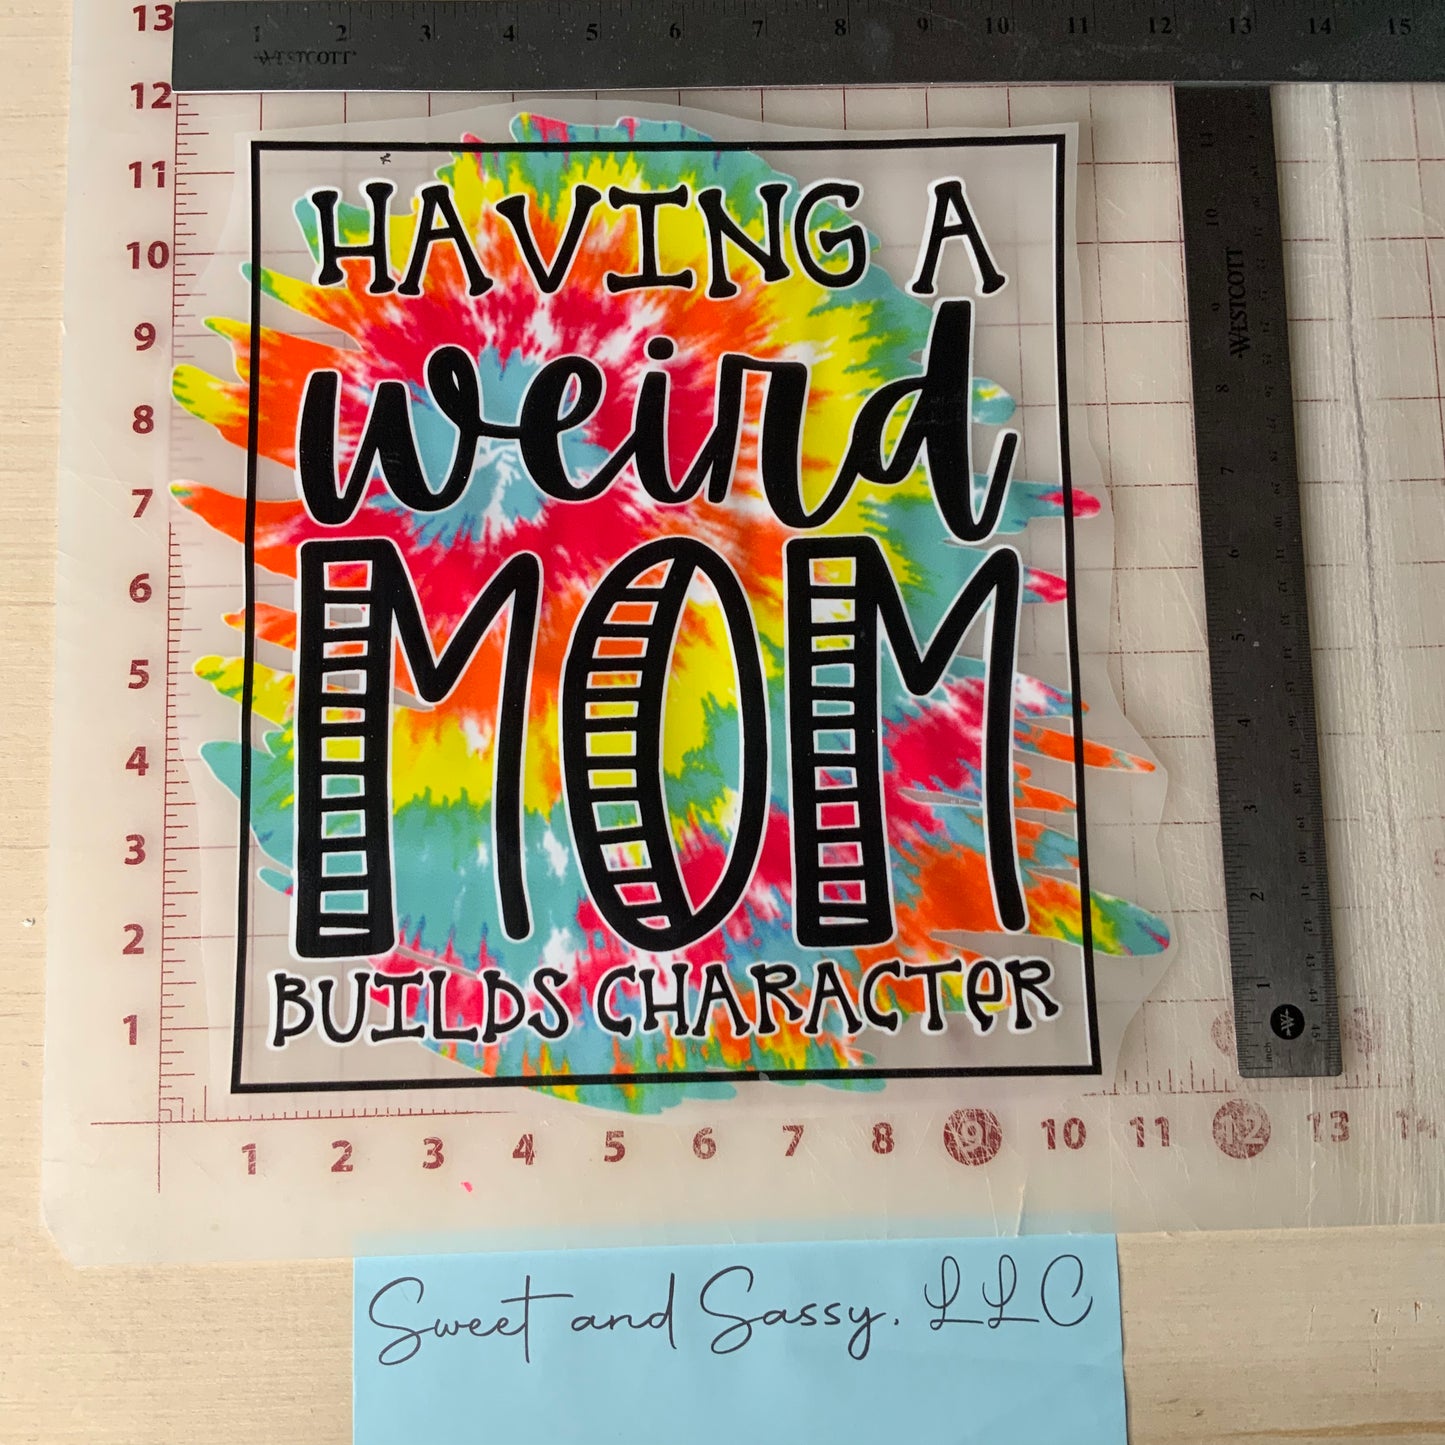 13
1 2 3 4 5 6 7 8 9 10 11 12 13 14 15
WESTCOTT
12
11
HAVING A
10
9
weird
8
7
MOM
6
5
4
3
2
BUILDS CHARACTER
1
11
10
9
WESTCOTT
8
7
6
5
4
3
2
1
inch
1 2 3 4 5 6 7 8 9 10 11 12 13 14
Sweet and Sassy, LLC